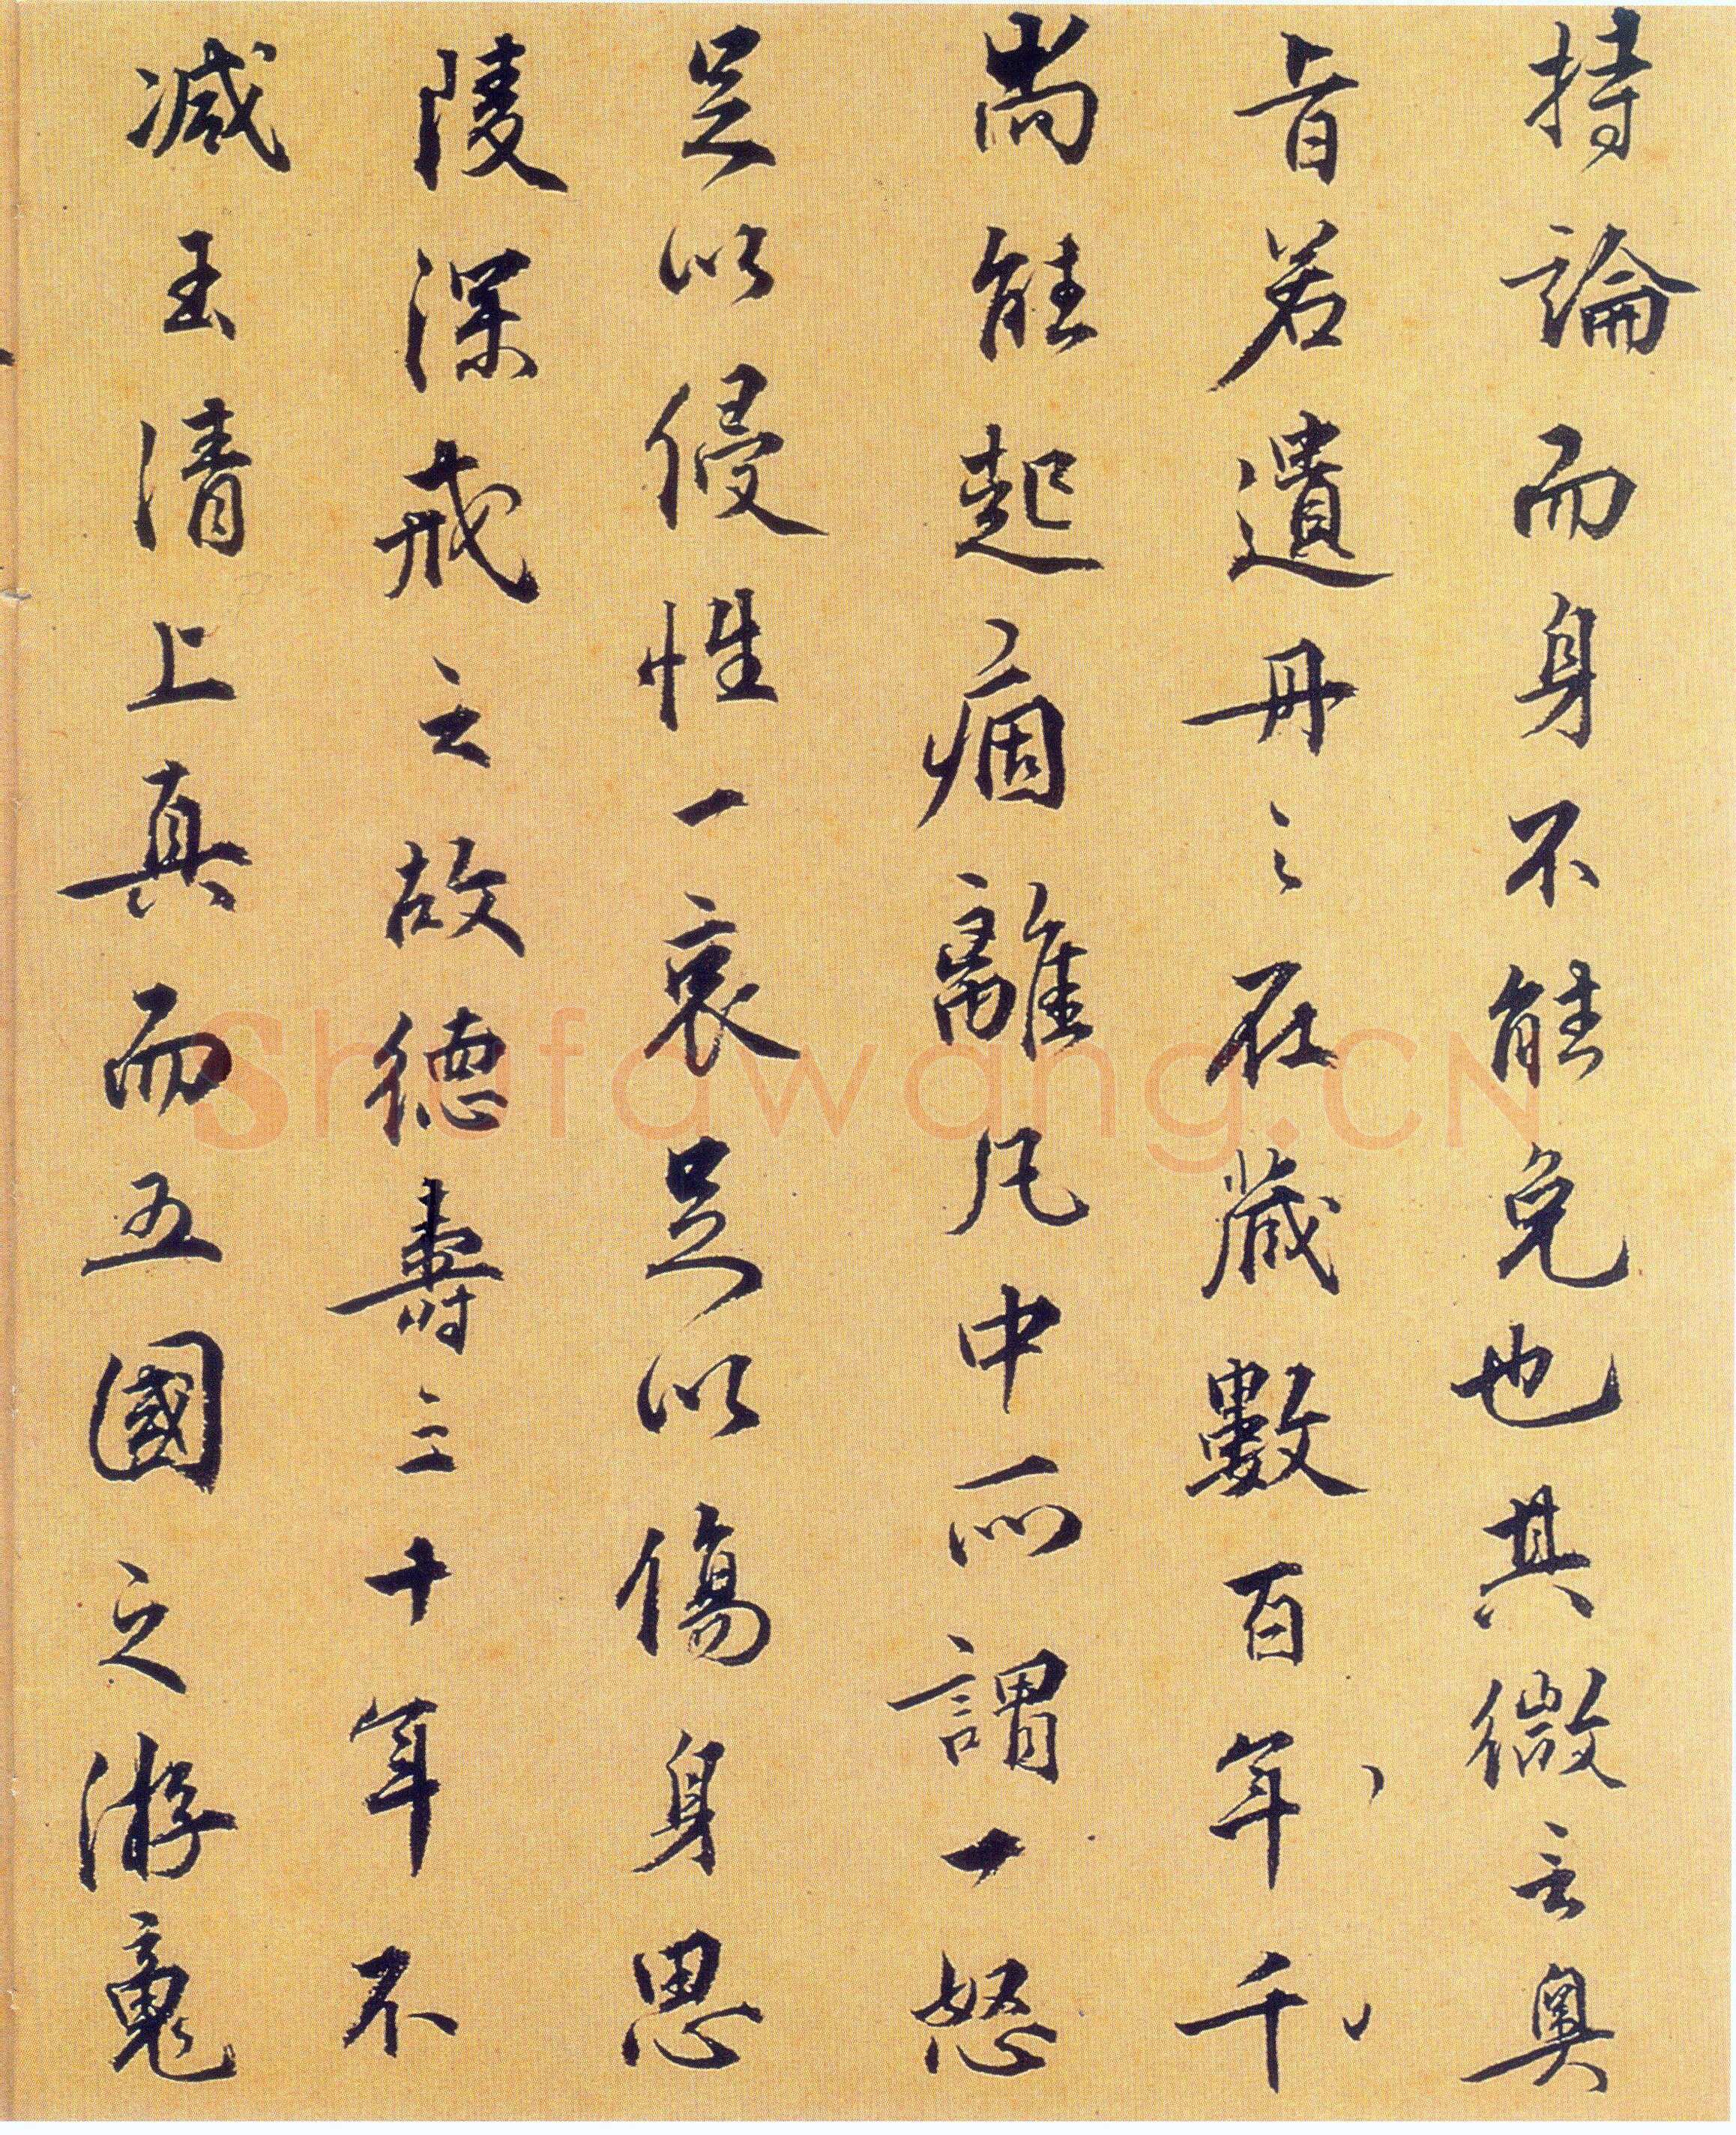 持論而身不能免也其微言奧
旨若遺丹之在藏數百年千
尚能起痼離凡中所謂一怒
足以侵性一哀足以傷身思
陵深戒之故德壽三十年不
減玉清上真而五國之游魂
Shufawang.CN